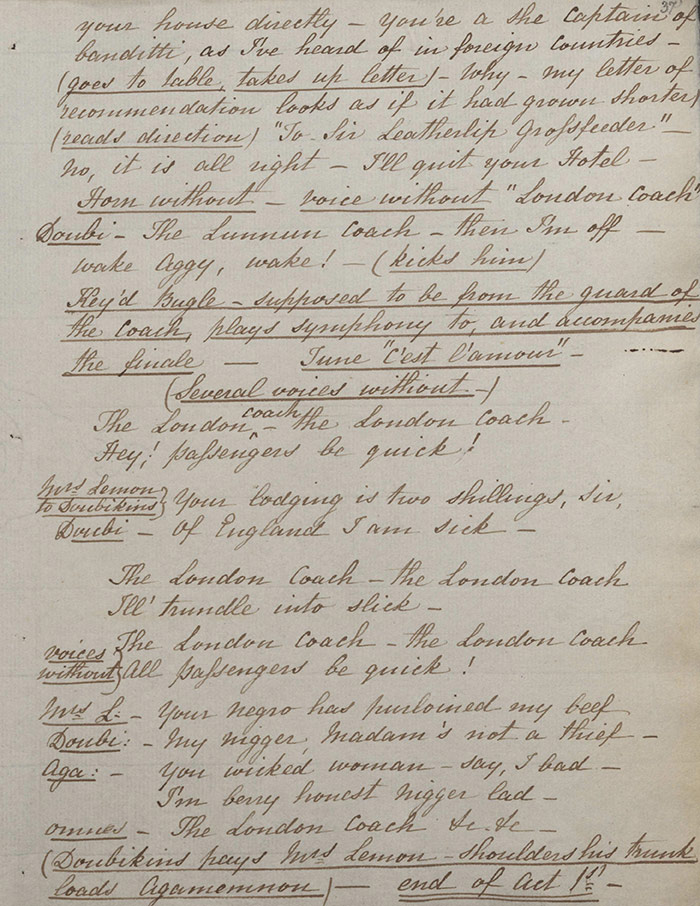 37
your house directly – You're a she Captain of
banditti, as I've heard of in foreign countries –
(goes to table, takes up letter) – Why – my letter of
recommendation looks as if it had grown shorter)
(reads direction) "To Sir Leatherlip Grossfeeder" –
No, it is all right – I'll quit your Hotel –
Horn without – voice without "London Coach"
Doubi – The Lunnun Coach – then I'm off –
wake Aggy, wake! – (kicks him)
Key'd Bugle – supposed to be from the guard of
the Coach, plays symphony to, and accompanies
the finale – Tune "C'est l'amour" –
(Several voices without –)
The London coach – the London Coach –
Hey! passengers be quick!
Mrs Lemon
to Doubikins} Your lodging is two shillings, Sir,
Doubi – Of England I am sick –
The London Coach – the London Coach
I'll' trundle into slick –
The London Coach – the London Coach
voices
without} All passengers be quick!
Mrs L: – Your negro has purloined my beef
Doubi: – My nigger, Madam's not a thief –
Aga: – You wicked woman – say, I bad –
I'm berry honest nigger lad –
omnes – The London Coach &c &c –
(Doubikins pays Mrs Lemon – shoulders his trunk
loads Agamemnon) – end of Act 1st –